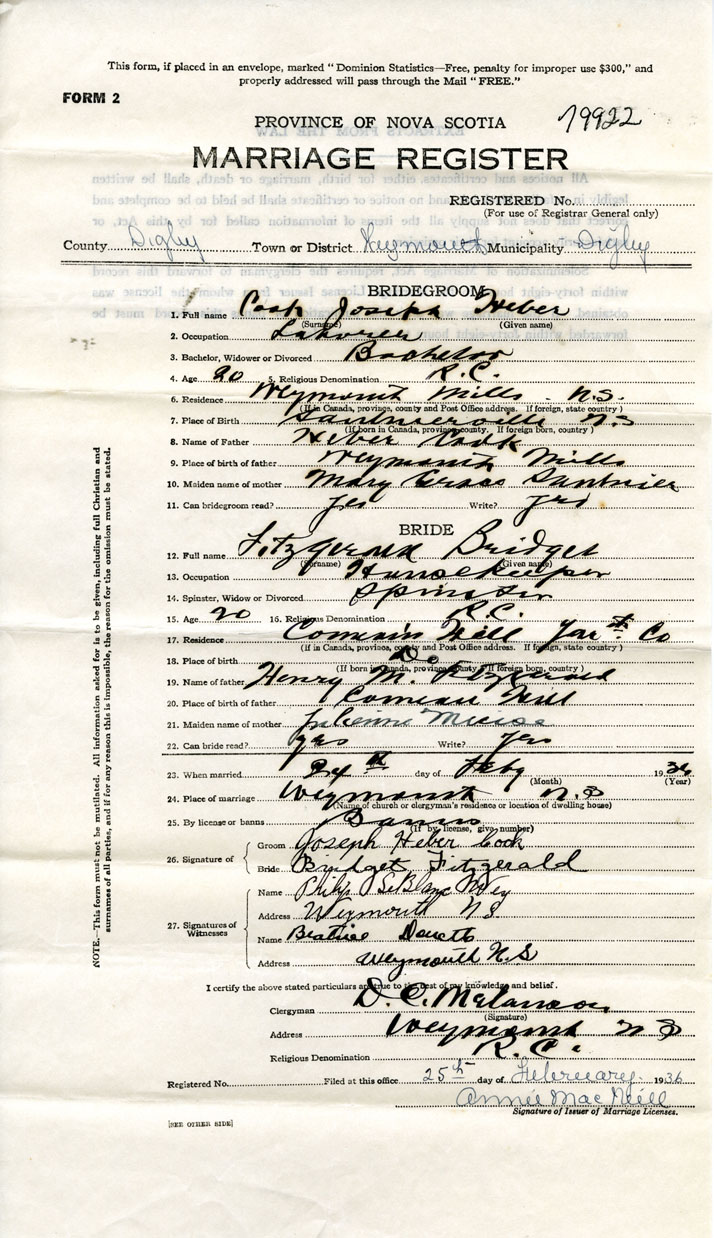 This form, if placed in an envelope, marked "Dominion Statistics—Free, penalty for improper use $300," and
properly addressed will pass through the Mail "FREE."
FORM 2
PROVINCE OF NOVA SCOTIA 79922
MARRIAGE REGISTER
REGISTERED No.
(For use of Registrar General only)
County Digby Town or District Weymouth Municipality Digby
BRIDEGROOM
1. Full name Cook Joseph Heber
(Surname) (Given name)
2. Occupation Laborer
3. Bachelor, Widower or Divorced Bachelor
4. Age 20 5. Religious Denomination R.C.
6. Residence Weymouth Mills. N.S.
(If in Canada, province, county and Post Office address. If foreign, state country)
7. Place of Birth Saulnierville N.S
(If born in Canada, province, county. If foreign born, country)
8. Name of Father Heber Cook
9. Place of birth of father Weymouth Mills
10. Maiden name of mother Mary Saulnier
11. Can bridegroom read? yes Write? yes
BRIDE
12. Full name Fitzgerald Bridget
(Surname) (Given name)
13. Occupation Housekeeper
14. Spinster, Widow or Divorced Spinster
15. Age 20 16. Religious Denomination R.C.
17. Residence Comeau's Hill Yar th Co
(if in Canada, province, county and Post Office address. If foreign, state country)
18. Place of birth Do
(If born in Canada, province, county. If foreign born, country)
19. Name of father Henry M. Fitzgerald
20. Place of birth of father Comeau Hill
21. Maiden name of mother Julienne Muise
22. Can bride read? yes Write? yes
23. When married 24 th day of Feby 1936
(Month) (Year)
24. Place of marriage Weymouth N.S
(Name of church or clergyman's residence or location of dwelling house)
25. By license or banns Banns
(If by license, give number)
26. Signature of
Groom Joseph Heber Cook
Bride Bridget Fitzgerald
27. Signatures of Witnesses
Name Philip LeBlanc
Address Weymouth N S
Name Beatrice Doucette
Address Weymouth N.S
I certify the above stated particulars are true to the best of my knowledge and belief.
Clergyman D. C. Melanson
(Signature)
Address Weymouth N S
Religious Denomination R. C.
Registered No. Filed at this office 25th day of February 1936
Annie MacNeill
Signature of Issuer of Marriage Licenses.
[SEE OTHER SIDE]
NOTE.—This form must not be mutilated. All information asked for is to be given, including full Christian and
surnames of all parties, and if for any reason this is impossible, the reason for the omission must be stated.